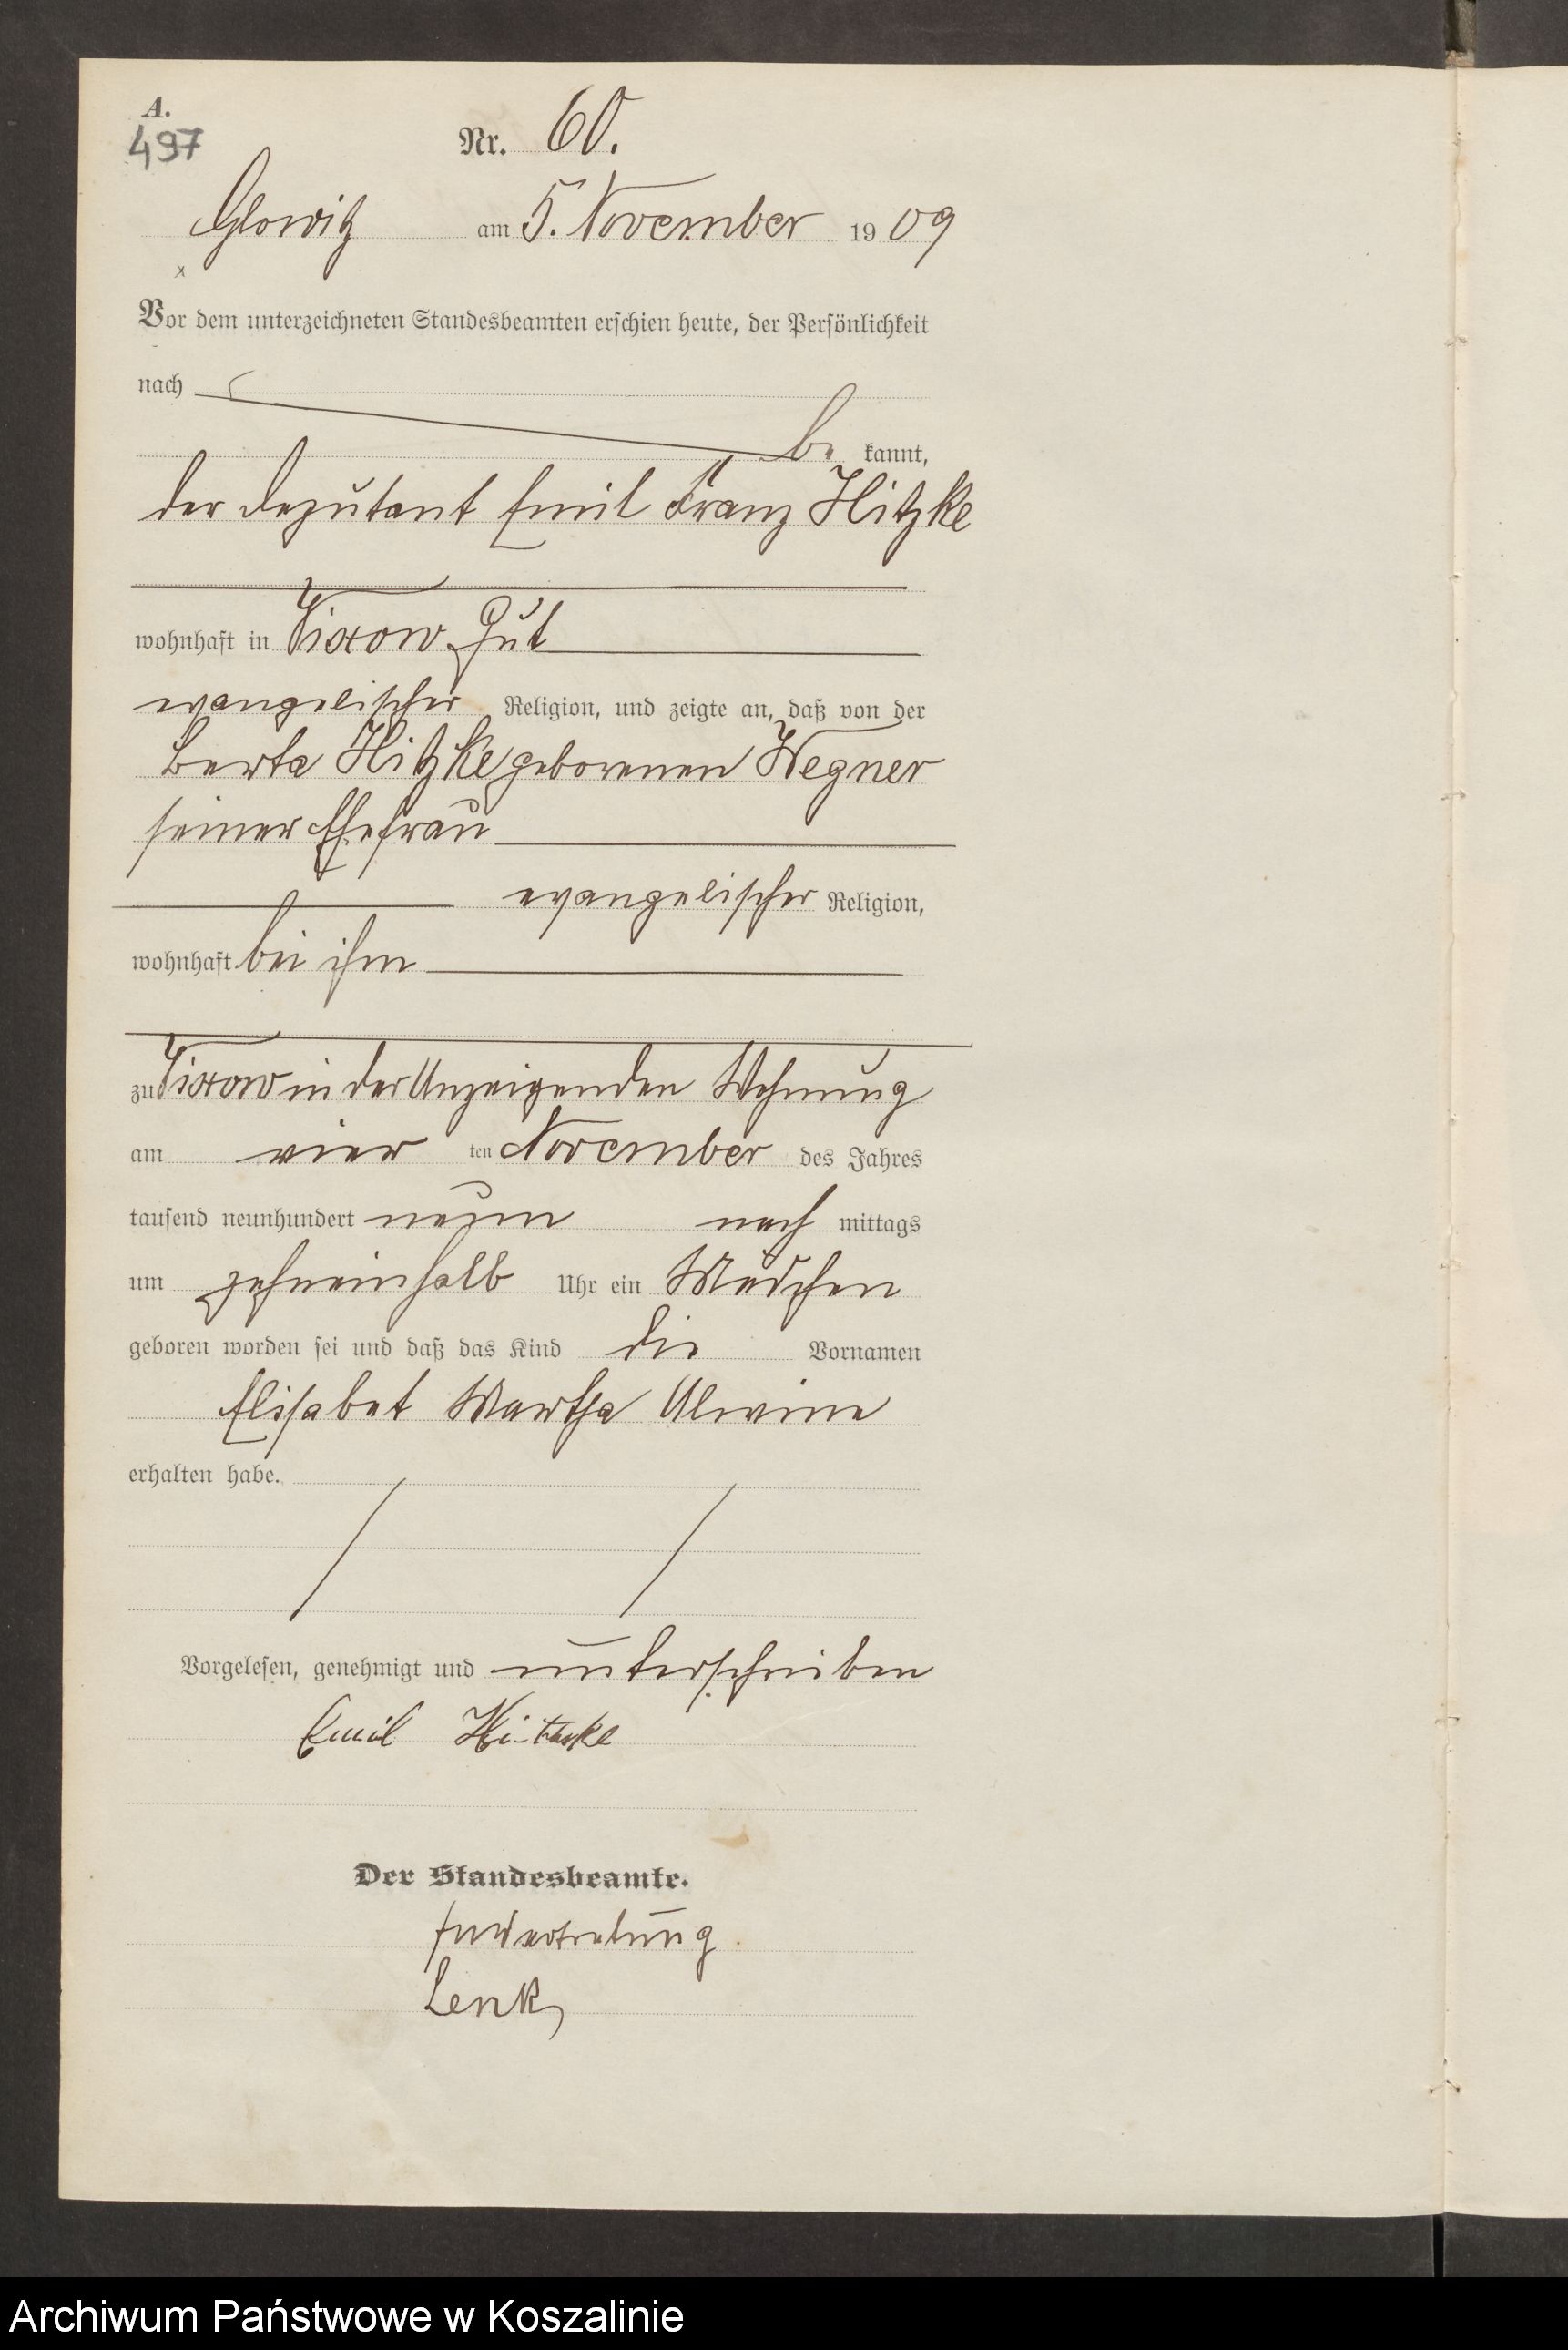 A.
497
Nr. 60.
Glowitz am 5. November 1909
Vor dem unterzeichneten Standesbeamten erschien heute, der Persönlichkeit
nach
be kannt,
der Deputant Emil Franz Hitzke
wohnhaft in Vixow Gut
evangelischer Religion, und zeigte an, daß von der
Berta Hitzke geborenen Wegner
seiner Ehefrau
evangelischer Religion,
wohnhaft bei ihm
zu Vixow in der Anzeigenden Wohnung
am vier ten November des Jahres
tausend neunhundert neun nach mittags
um zehneinhalb Uhr ein Mädchen
geboren worden sei und daß das Kind die Vornamen
Elisabet Martha Alwine
erhalten habe.
Vorgelesen, genehmigt und unterschrieben
Emil Hitzke
Der Standesbeamte.
In Vertretung
Lenk
Archiwum Państwowe w Koszalinie